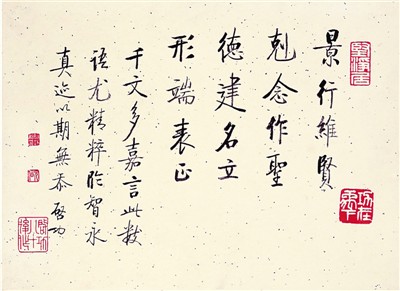 景行維賢
剋念作聖
德建名立
形端表正
千文多嘉言此数
語尤精粹臨智永
真迹以期無忝 啓功